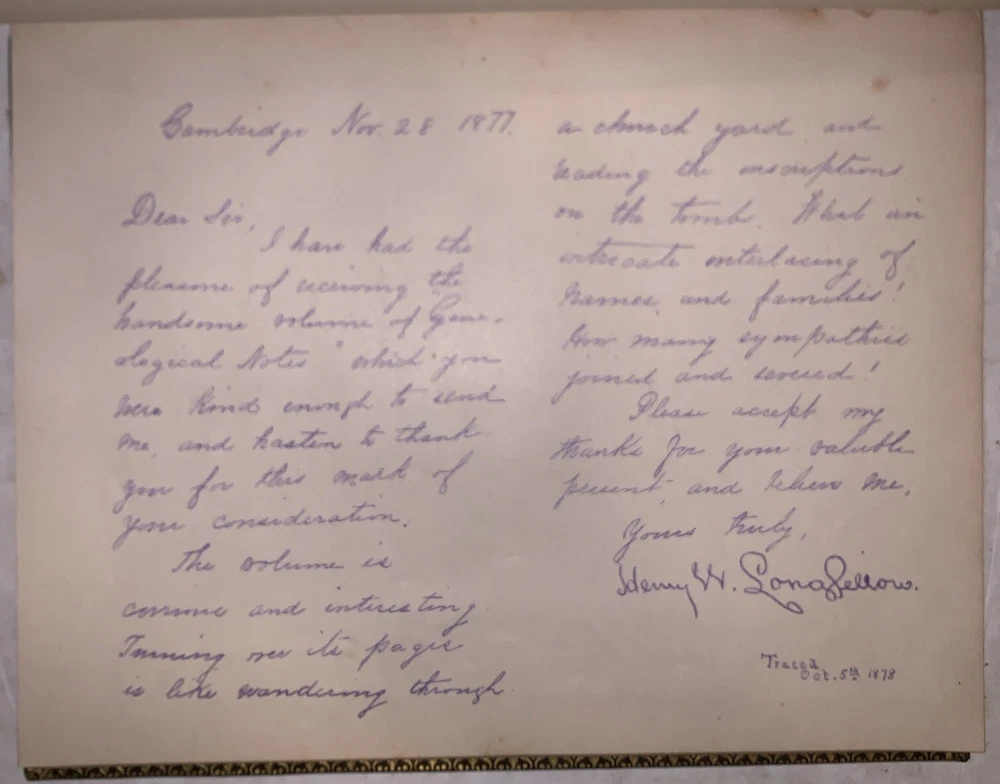 Cambridge Nov. 28 1877.
Dear Sir,
I have had the
pleasure of receiving the
handsome volume of "Gene-
alogical Notes" which you
were kind enough to send
me, and hasten to thank
you for this mark of
your consideration.
The volume is
curious and interesting.
Turning over its pages
is like wandering through
a church yard and
reading the inscriptions
on the tombs. What an
intricate interlacing of
names and families!
How many sympathies
joined and severed!
Please accept my
thanks for your valuable
present, and believe me,
Yours truly,
Henry W. Longfellow.
Traced
Oct. 5th 1878